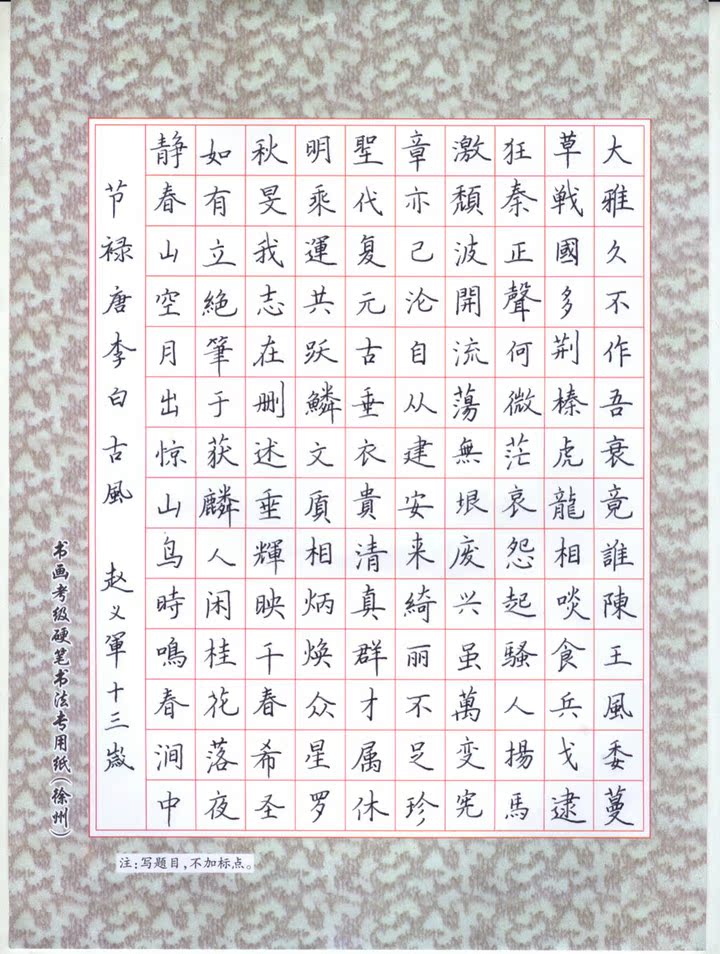 大雅久不作吾衰竟誰陳王風委蔓
草戦國多荆榛虎龍相啖食兵戈逮
狂秦正聲何微茫哀怨起騷人揚馬
激頹波開流蕩無垠废兴虽萬变宪
章亦已沦自从建安来綺丽不足珍
聖代复元古垂衣貴清真群才属休
明乘運共跃鱗文质相炳焕众星罗
秋旻我志在删述垂輝映千春希圣
如有立絶筆于获麟人闲桂花落夜
静春山空月出惊山鸟時鳴春涧中
节禄唐李白古風 赵义軍十三歲
书画考级硬笔书法专用纸(徐州)
注:写题目,不加标点。